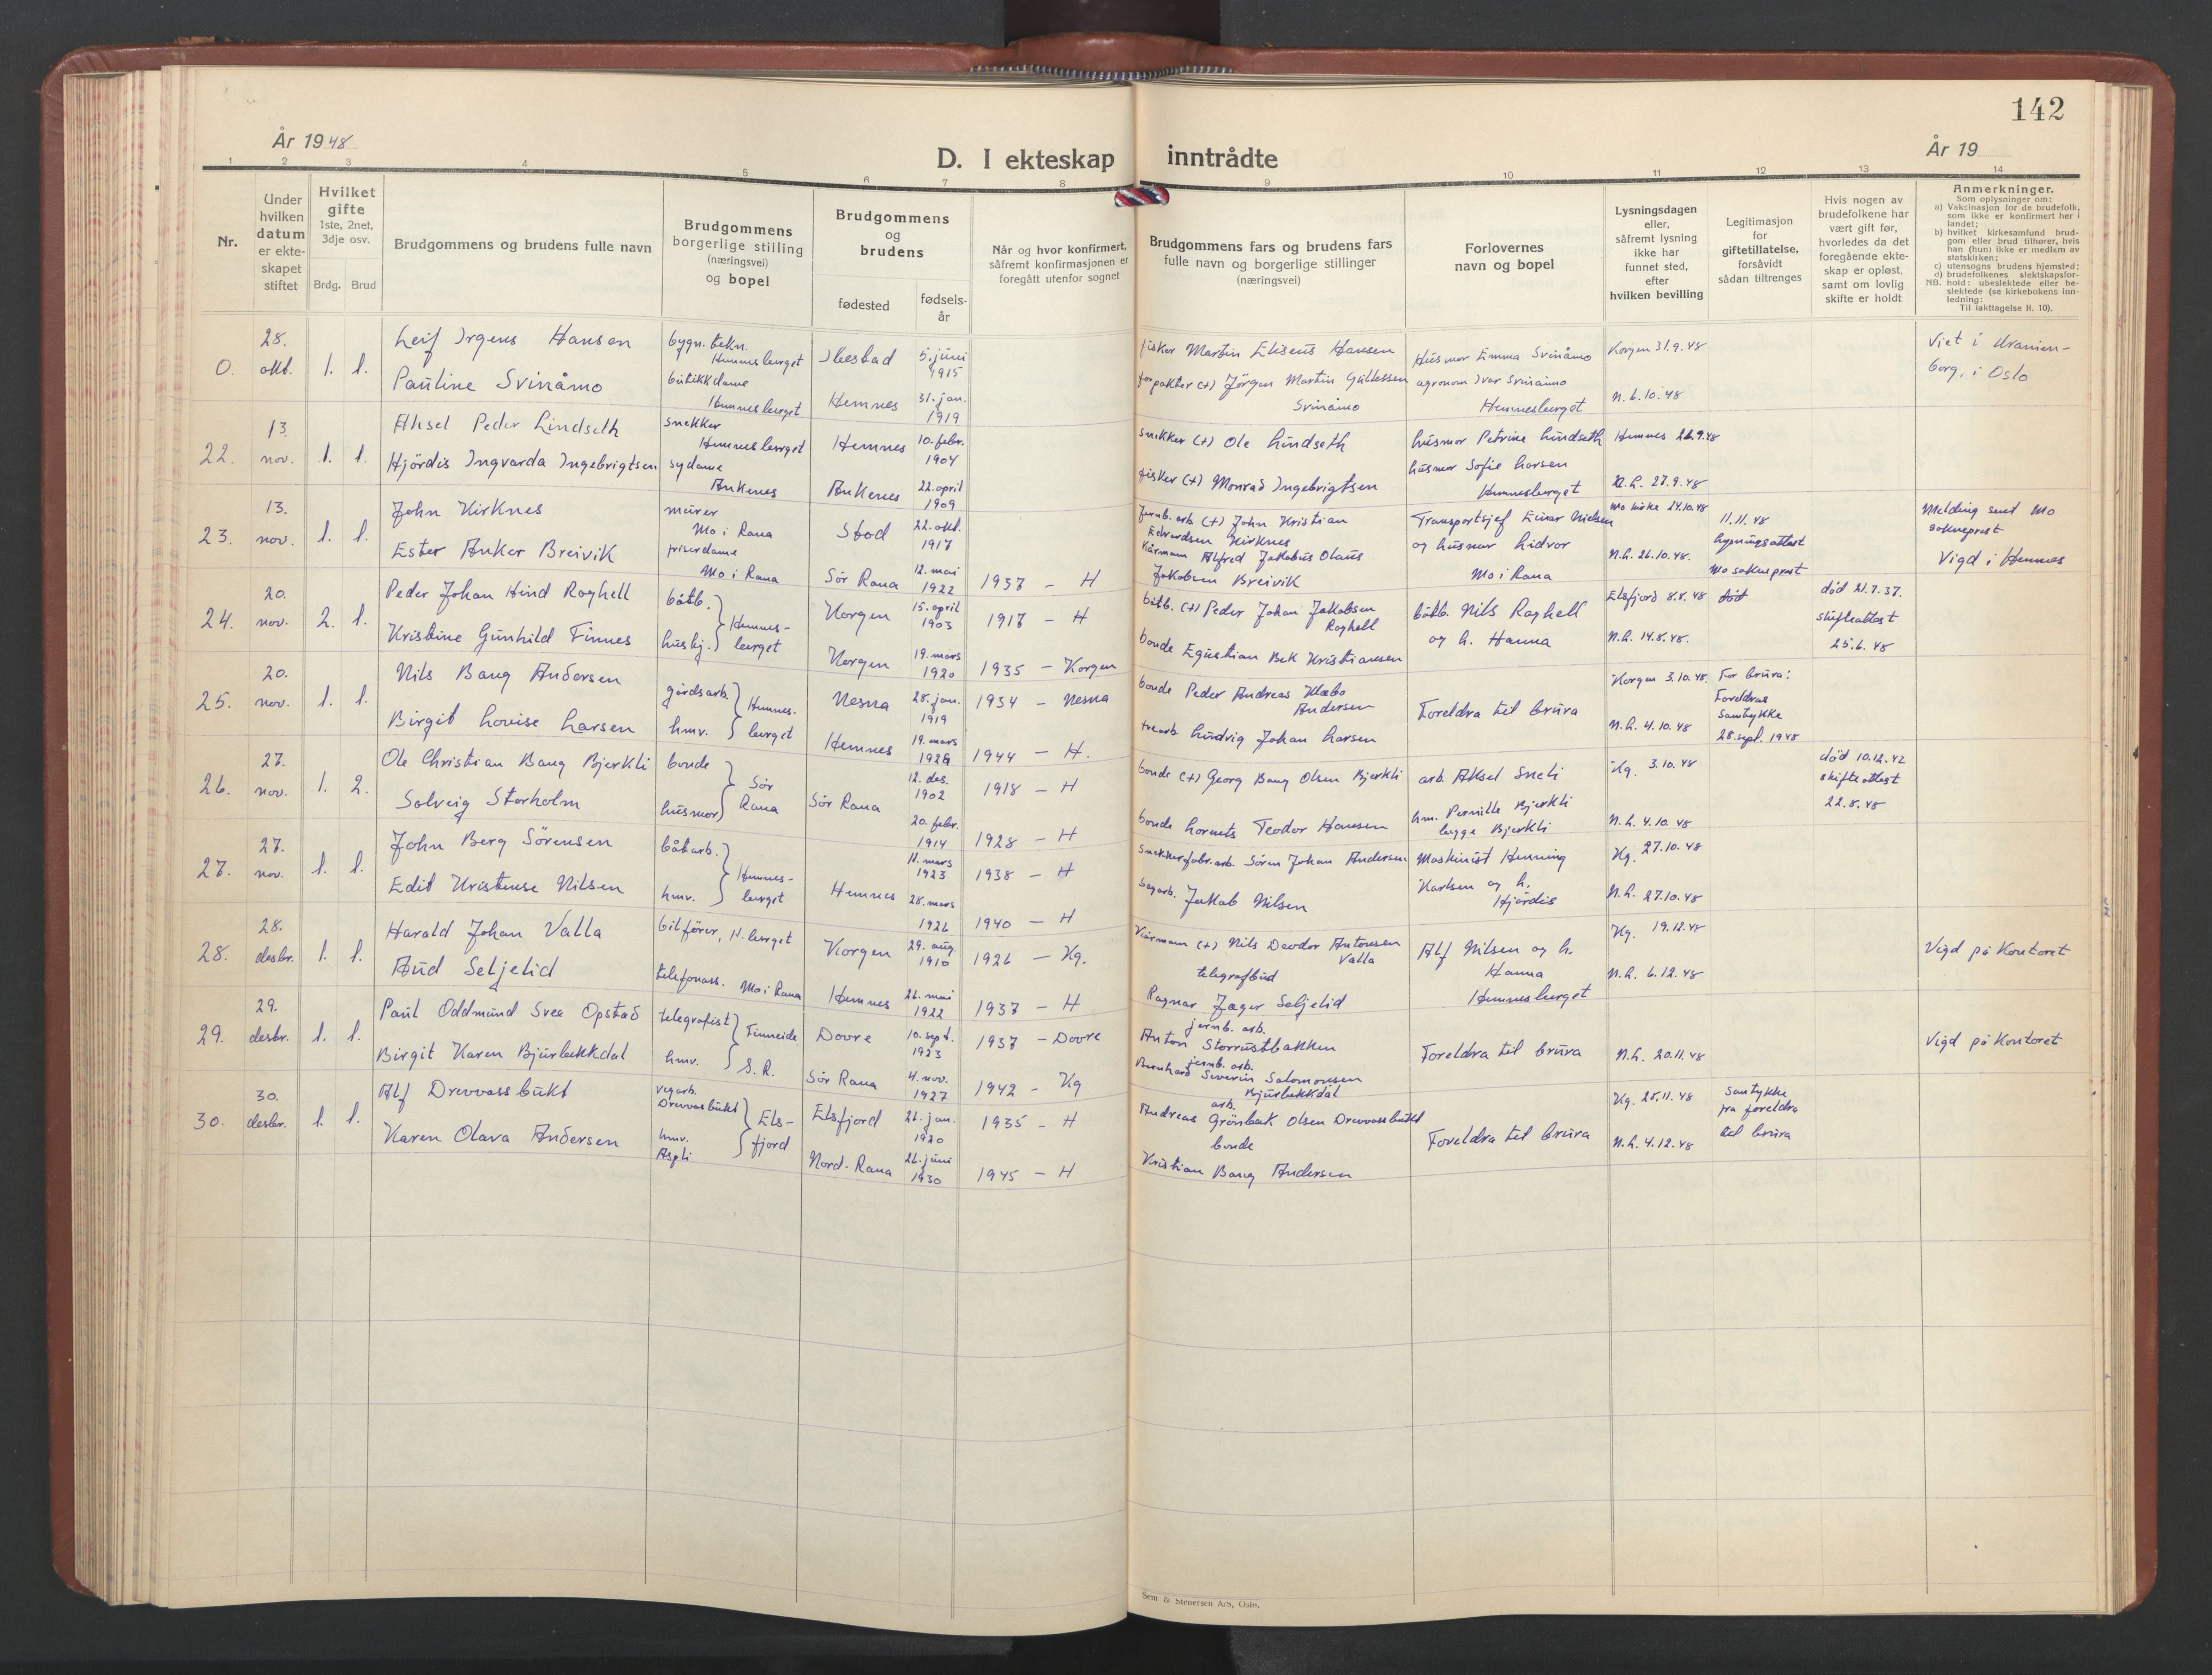 142
År 1948
D. I ekteskap inntrådte
År 19
1 2 3 4 5 6 7 8 9 10 11 12 13 14
Nr.
Under hvilken datum er ekte-skapet stiftet
Hvilket gifte
1ste, 2net, 3dje osv.
Brdg. Brud
Brudgommens og brudens fulle navn
Brudgommens borgerlige stilling (næringsvei) og bopel
Brudgommens og brudens
fødested
fødsels-år
Når og hvor konfirmert, såfremt konfirmasjonen er foregått utenfor sognet
Brudgommens fars og brudens fars fulle navn og borgerlige stillinger (næringsvei)
Forlovernes navn og bopel
Lysningsdagen eller, såfremt lysning ikke har funnet sted, efter hvilken bevilling
Legitimasjon for giftetillatelse, forsåvidt sådan tiltrenges
Hvis nogen av brudefolkene har vært gift før, hvorledes da det foregående ekte-skap er opløst, samt om lovlig skifte er holdt
Anmerkninger.
Som oplysninger om:
a) Vaksinasjon for de brudefolk, som ikke er konfirmert her i landet;
b) hvilket kirkesamfund brud-gom eller brud tilhører, hvis han (hun) ikke er medlem av statskirken;
c) utensogns brudens hjemsted;
d) brudefolkenes slektskapsfor-hold: ubeslektede eller be-slektede (se kirkebokens inn-ledning:
NB. Til iakttagelse H. 10).
0. 28. okt. 1. 1.
Leif Irgens Hansen
bygn. tekn. Hemnesberget
Ibestad 5. juni 1915
fisker Martin Eliseus Hansen
Husmor Emma Svinåmo
Korgen 31.9.48
Viet i Uranien-
borg, i Oslo
Pauline Svinåmo
butikkdame Hemnesberget
Hemnes 31. jan. 1919
forpakter (+) Jörgen Martin Gullesen Svinåmo
agronom Ivar Svinåmo
Hemnesberget
N. 6.10.48
22. 13. nov. 1. 1.
Aksel Peder Lindseth
snekker Hemnesberget
Hemnes 10. febr. 1904
snekker (+) Ole Lindseth
husmor Petrine Lindseth
Hemnes 26.9.48
Hjördis Ingvarda Ingebrigtsen
sydame Ankenes
Ankenes 22. april 1909
fisker (+) Monrad Ingebrigtsen
husmor Sofie Larsen
Hemnesberget
N.L. 27.9.48
23. 13. nov. 1. 1.
John Kirknes
murer Mo i Rana
Stod 22. okt. 1917
Jernb. arb. (+) John Kristian Edvardsen Kirknes
Transportsjef Einar Nielsen
og husmor Lidvor
Mo i Rana
Mo kirke 24.10.48
11.11.48
lysningsattest
Mo sokneprest
Melding send Mo
sokneprest
Vigd i Hemnes
Ester Anker Breivik
friserdame Mo i Rana
Sör Rana 12. mai 1922 1937 – H
Kårmann Alfred Jakobus Olaus
Jakobsen Breivik
N.L. 26.10.48.
24. 20. nov. 2. 1.
Peder Johan Hind Roghell
båtb. Hemnes-
berget
Korgen 15. april 1903 1917 – H
båtb. (+) Peder Johan Jakobsen Roghell
båtb. Nils Roghell
og h. Hanna
Elsfjord 8.8.48
död
død 21.7.37.
skifteattest
25.6.48
Kristine Gunhild Finnes
hushj.
Korgen 19. mars 1920 1935 – Korgen
bonde Egustian Bek Kristiansen
N.L. 14.8.48.
25. 20. nov. 1. 1.
Nils Bang Andersen
gårdsarb. Hemnes-
berget
Nesna 28. jan. 1919 1934 – Nesna
bonde Peder Andreas Klæbo Andersen
Foreldra til brura
Korgen 3.10.48.
For brura:
Foreldras
samtykke
28. sept. 1948
Birgit Lovise Larsen
hmv.
Hemnes 19. mars 1929 1944 – H.
trearb. Ludvig Johan Larsen
N.L. 4.10.48
26. 27. nov. 1. 2.
Ole Christian Bang Bjerkli
bonde Sör
Rana
Sör Rana 12. des. 1902 1918 – H
bonde (+) Georg Bang Olsen Bjerkli
arb. Aksel Sneli
Kg. 3.10.48
død 10.12.42
skifteattest
22.8.48
Solveig Storholm
husmor
20. febr. 1914 1928 – H
bonde Lornts Teodor Hansen
hm. Pernille Bjerkli
bygge Bjerkli
N.L. 4.10.48
27. 27. nov. 1. 1.
John Berg Sörensen
båtarb. Hemnes-
berget
Hemnes 11. mars 1923 1938 – H
Snekkerfabr.arb. Sören Johan Andersen
Maskinist Henning
Karlsen og h.
Hjördis
Kg. 27.10.48
Edit Kristense Nilsen
hmv.
28. mars 1926 1940 – H
Sagarb. Jakob Nilsen
N.L. 27.10.48
28. 28. desbr. 1. 1.
Harald Johan Valla
bilförer, H.berget
Korgen 29. aug. 1910 1926 – Kg.
Kårmann (+) Nils Deodor Antonsen Valla
Alf Nilsen og h.
Hanna
Hemnesberget
Kg. 19.12.48
Vigd på Kontoret
Aud Seljelid
telefonass. Mo i Rana
Hemnes 26. mai 1922 1937 – H
telegrafbud
Ragnar Jæger Seljelid
N.L. 6.12.48
29. 29. desbr. 1. 1.
Paul Oddmund Svea Opstad
telegrafist Finneide
S.R.
Dovre 10. sept. 1923 1937 – Dovre
jernb. arb.
Anton Storrustbakken
Foreldra til brura
N.L. 20.11.48
Vigd på Kontoret
Birgit Karen Bjurbekkdal
hmv.
Sör Rana 4. nov. 1927 1942 – Kg
jernb. arb.
Bernhard Severin Salomonsen
Bjurbekkdal
30. 30. desbr. 1. 1.
Alf Drevvassbukt
vegarb.
Drevvasbukt Els-
fjord
Elsfjord 26. jan. 1920 1935 – H
arb.
Andreas Grönbæk Olsen Drevvassbukt
Foreldra til brura
Kg. 28.11.48
Samtykke
fra foreldra
til brura
Karen Olava Andersen
hmv.
Aspli
Nord-Rana 26. juni 1930 1945 – H
bonde
Kristian Bang Andersen
N.L. 4.12.48
Sem & Stenersen A/S, Oslo.